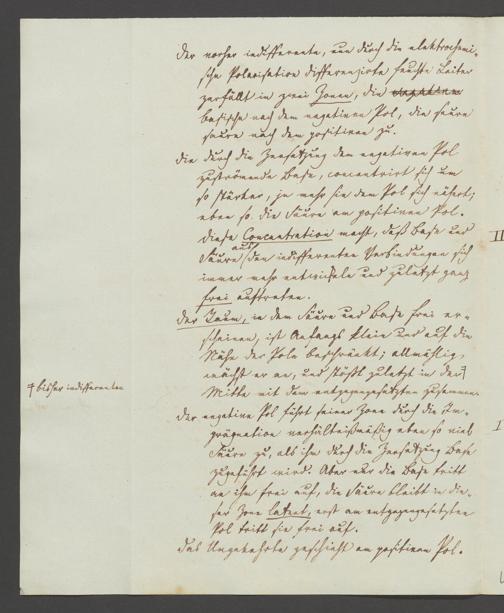 Der vorher indifferente, nun durch die elektrochemi-
sche Polarisation differenzirte feuchte Leiter
zerfällt in zwei Zonen, die
basische nach dem negativen Pol, die saure
saure nach dem positiven zu.
Die durch die Zersetzung dem negativen Pol
zuströmende Base, concentrirt sich um
so stärker, je mehr sie dem Pol sich nähert;
eben so die Säure am positiven Pol.
Diese Concentration macht, daß Base und
Säure aus den indifferenten Verbindungen sich
immer mehr entwickeln und zuletzt ganz
frei auftreten.
Der Raum, in dem Säure und Base frei er-
scheinen, ist Anfangs klein und auf die
Nähe der Pole beschränkt; allmählig
wächst er an, und stößt zuletzt in der
+ bisher indifferenten
Mitte mit dem entgegengesetzten zusammen.
Der negative Pol führt seiner Zone durch die Im-
prägnation verhältnißmäßig eben so viel
Säure zu, als ihm durch die Zersetzung Base
zugeführt wird. Aber nur die Base tritt
an ihm frei auf, die Säure bleibt in die-
ser Zone latent, erst am entgegengesetzten
Pol tritt sie frei auf.
Das Umgekehrte geschieht am positiven Pol.
II
I